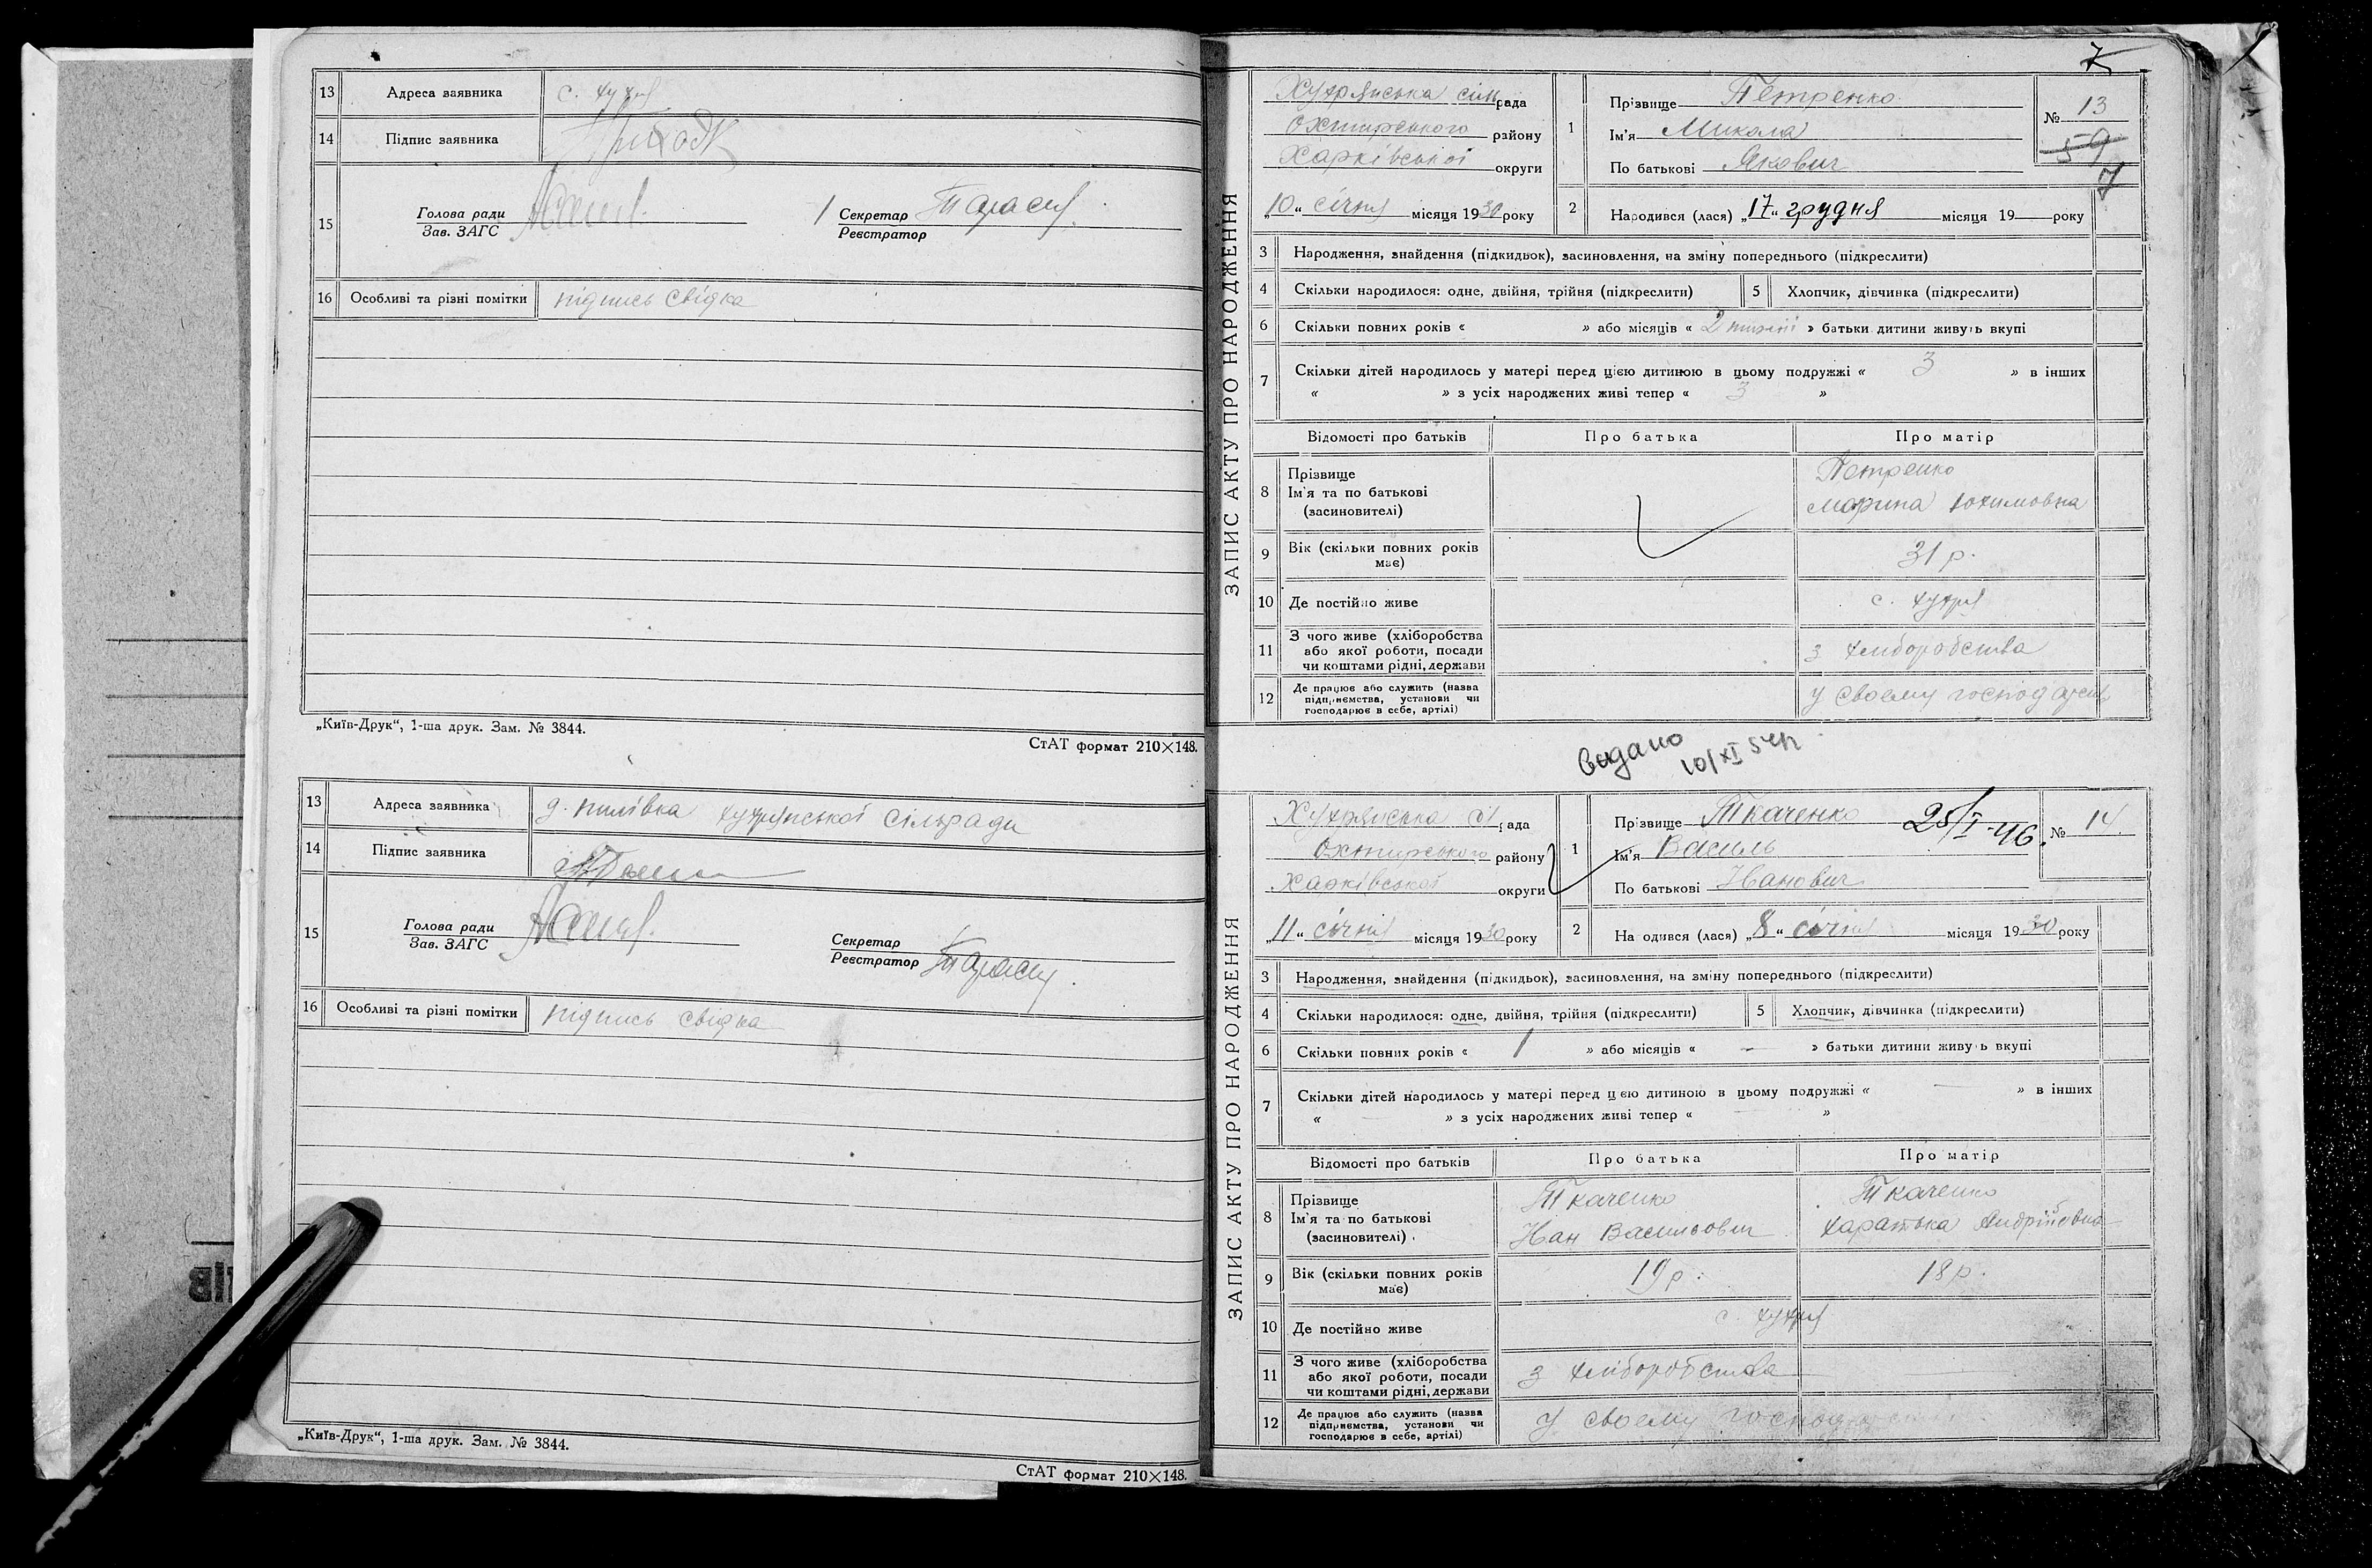 13 Адреса заявника с. Хухря
14 Підпис заявника
15 Голова ради
Зав. ЗАГС
Секретар
Реєстратор
16 Особливі та різні помітки підпись свідка
„Київ-Друк“, 1-ша друк. Зам. № 3844.
СтАТ формат 210×148.
13 Адреса заявника Хухрянської сільради
14 Підпис заявника
15 Голова ради
Зав. ЗАГС
Секретар
Реєстратор
16 Особливі та різні помітки підпись свідка
„Київ-Друк“, 1-ша друк. Зам. № 3844.
СтАТ формат 210×148.
7
ЗАПИС АКТУ ПРО НАРОДЖЕННЯ
Хухрянська сільрада
Охтирського району
Харківської округи
„10“ січня місяця 1930 року
1 Прізвище Петренко
Ім'я Микола
По батькові Якович
№ 13
59
7
2 Народився (лася) „17“ грудня місяця 19 року
3 Народження, знайдення (підкидьок), засиновлення, на зміну попереднього (підкреслити)
4 Скільки народилося: одне, двійня, трійня (підкреслити) 5 Хлопчик, дівчинка (підкреслити)
6 Скільки повних років « » або місяців « 2 » батьки дитини живуть вкупі
7 Скільки дітей народилось у матері перед цією дитиною в цьому подружжі « 3 » в інших
« » з усіх народжених живі тепер « 3 »
Відомості про батьків Про батька Про матір
8 Прізвище
Ім'я та по батькові
(засиновителі)
Петренко
Марина Юхимовна
9 Вік (скільки повних років має) 31 р.
10 Де постійно живе с. Хухря
11 З чого живе (хліборобства
або якої роботи, посади
чи коштами рідні, держави
з хліборобства
12 Де працює або служить (назва
підприємства, установи чи
господарює в себе, артілі)
у своему
видано
10/XI 54р
ЗАПИС АКТУ ПРО НАРОДЖЕННЯ
Хухрянська сілрада
Охтирського району
Харківської округи
„11“ січня місяця 1930 року
1 Прізвище Ткаченко
Ім'я Василь
По батькові Іванович
25/I-46.
№ 14
2 Народився (лася) „8“ січня місяця 1930 року
3 Народження, знайдення (підкидьок), засиновлення, на зміну попереднього (підкреслити)
4 Скільки народилося: одне, двійня, трійня (підкреслити) 5 Хлопчик, дівчинка (підкреслити)
6 Скільки повних років « 1 » або місяців « - » батьки дитини живуть вкупі
7 Скільки дітей народилось у матері перед цією дитиною в цьому подружжі « — » в інших
« — » з усіх народжених живі тепер « — »
Відомості про батьків Про батька Про матір
8 Прізвище
Ім'я та по батькові
(засиновителі)
Ткаченко
Іван Васильович
Ткаченко
Харатька Андрійовна
9 Вік (скільки повних років має) 19 р. 18 р.
10 Де постійно живе с. Хухря
11 З чого живе (хліборобства
або якої роботи, посади
чи коштами рідні, держави
з хліборобства
12 Де працює або служить (назва
підприємства, установи чи
господарює в себе, артілі)
у своему